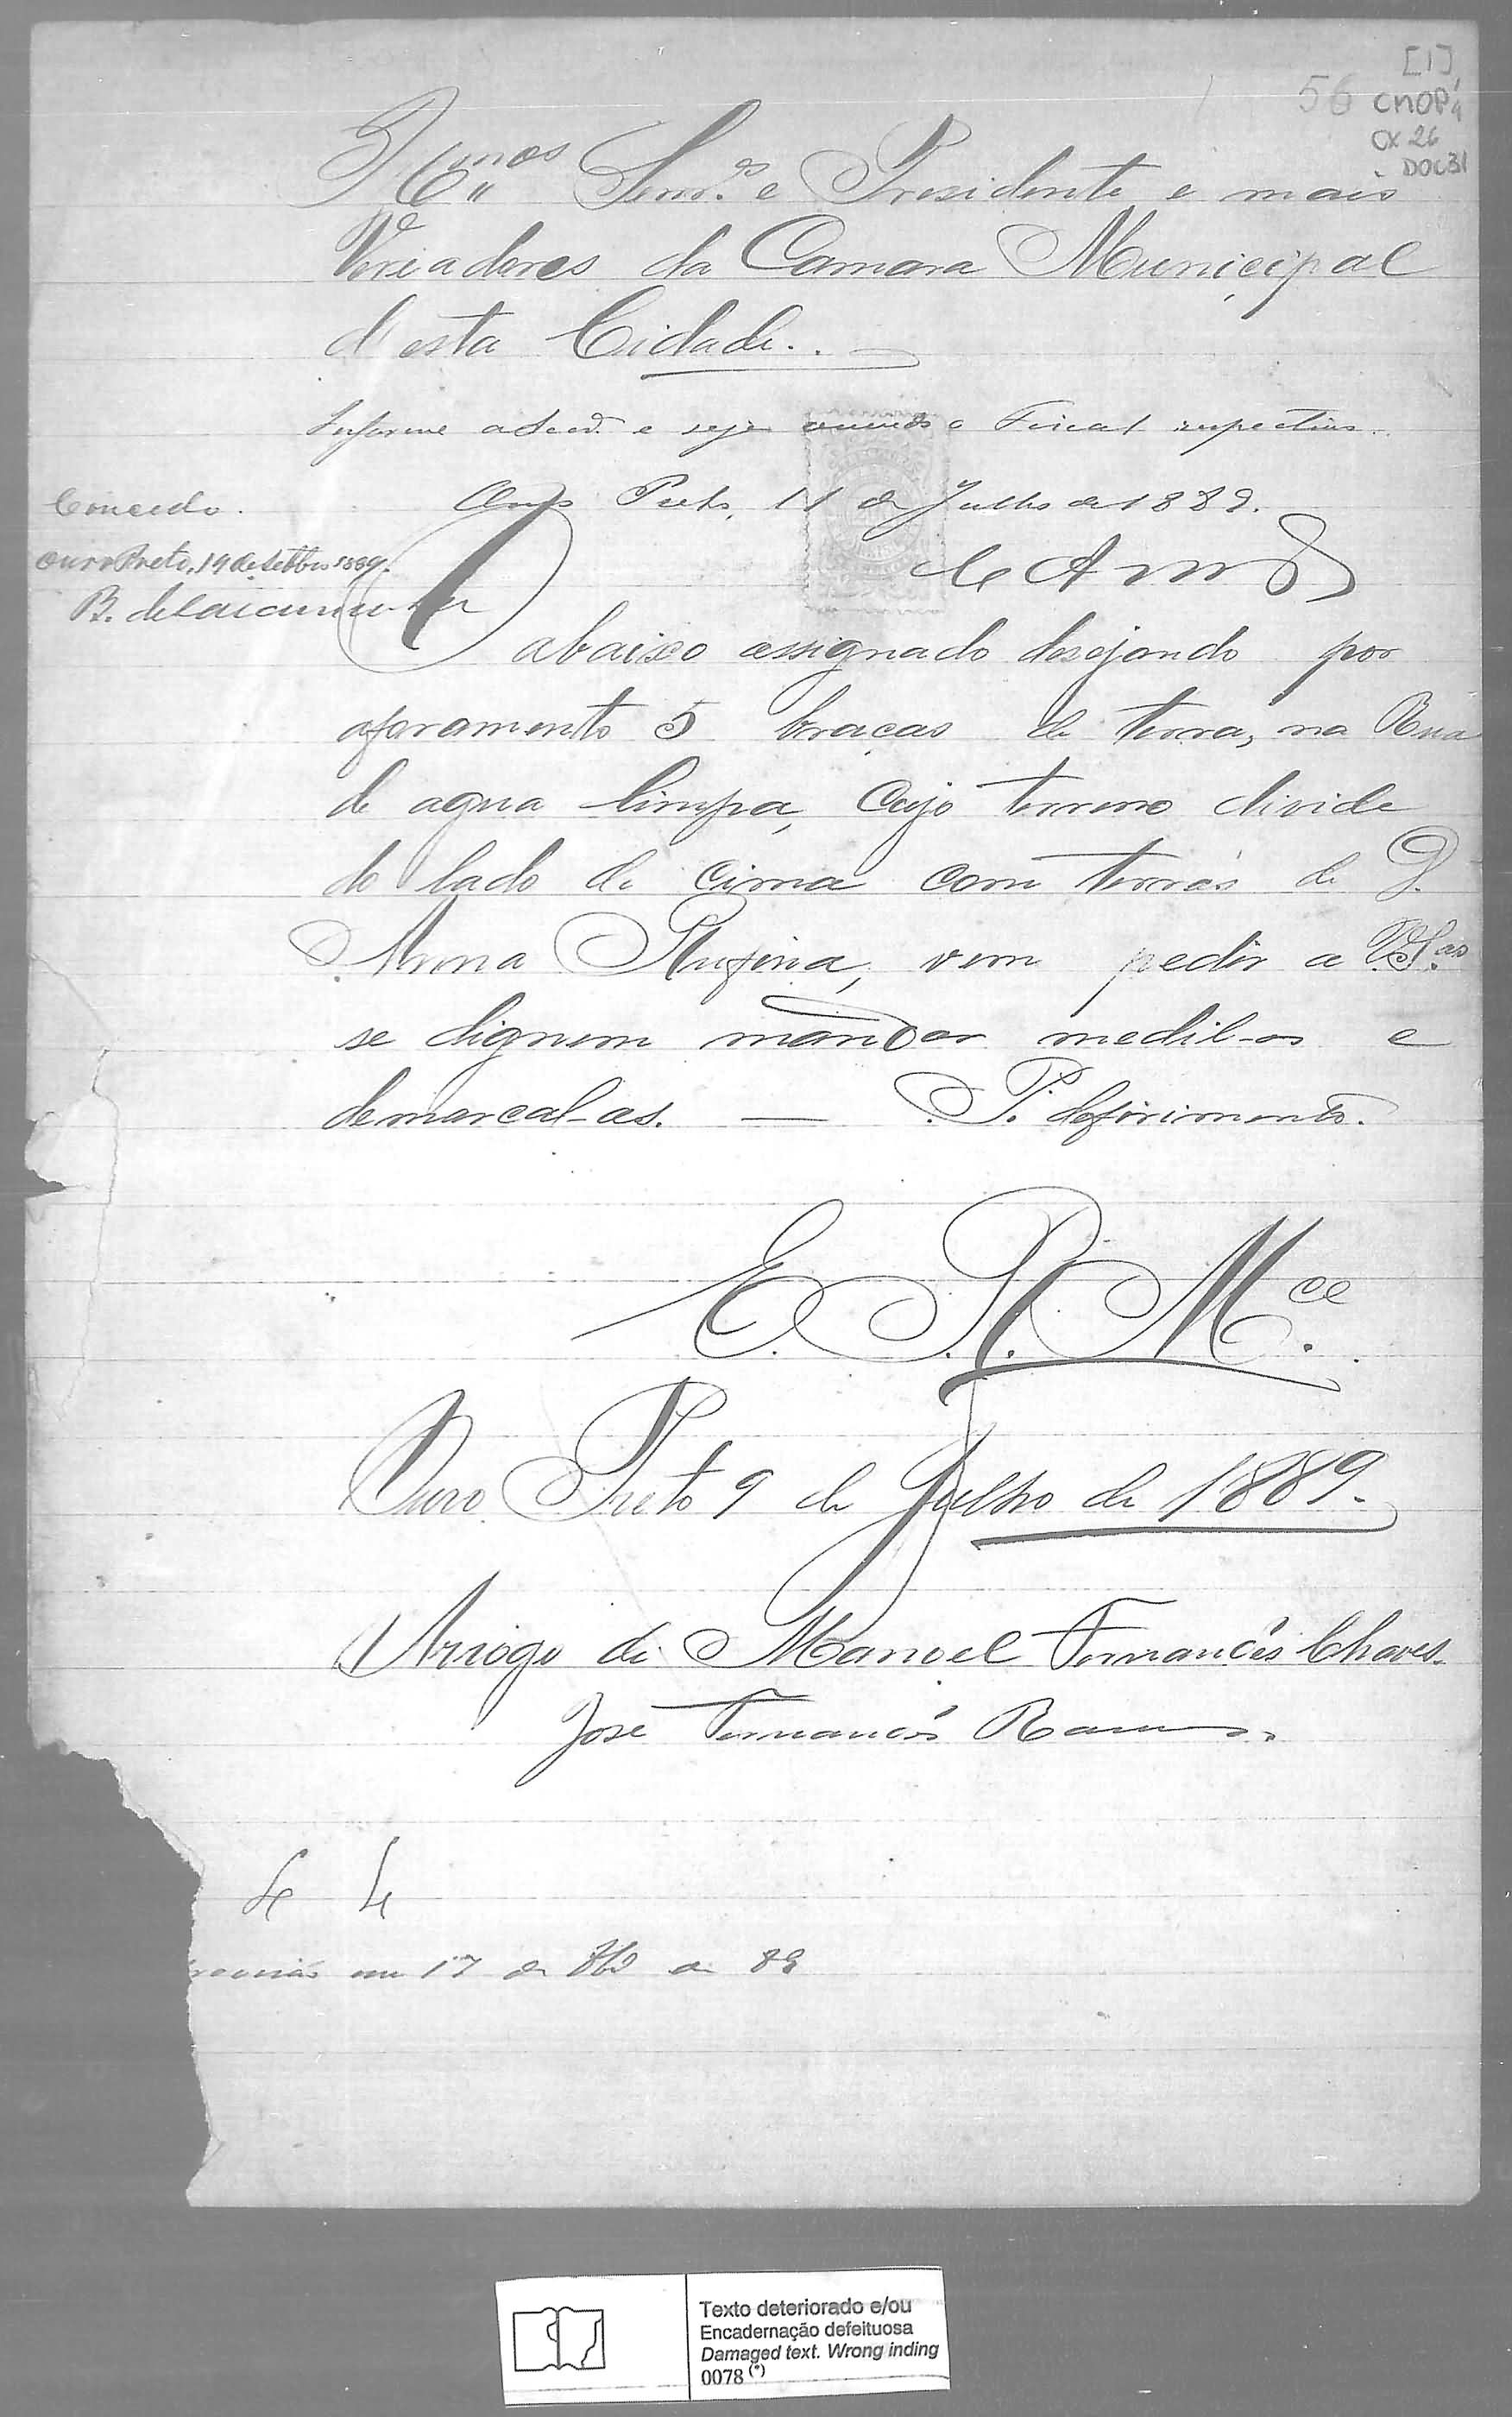 [1]
56 CMOP,
CX 26
DOC 31
Ill.mos Senr.es Presidente e mais
Veriadores da Camara Municipal
d'esta Cidade.
Informe a Secc. e seja ouvido o Fiscal respectivo.
Ouro Preto, 11 de Julho de 1889.
Concedo.
Ouro Preto, 19 de Setbro 1889.
O abaixo assignado desejando por
aforamento 5 bracas de terra, na Rua
de agua limpa, cujo terreno divide
do lado de cima com terras de D.
Anna Rufina, vem pedir a V.S.as
se dignem mandar medil-as e
demarcal-as. — P. deferimento.
E. R. M.ce
Ouro Preto 9 de Julho de 1889.
Arrogo de Manoel Fernandes Chaves.
José Fernandes Ramos.
em 17 de de 89
Texto deteriorado e/ou
Encadernação defeituosa
Damaged text. Wrong inding
0078 (*)